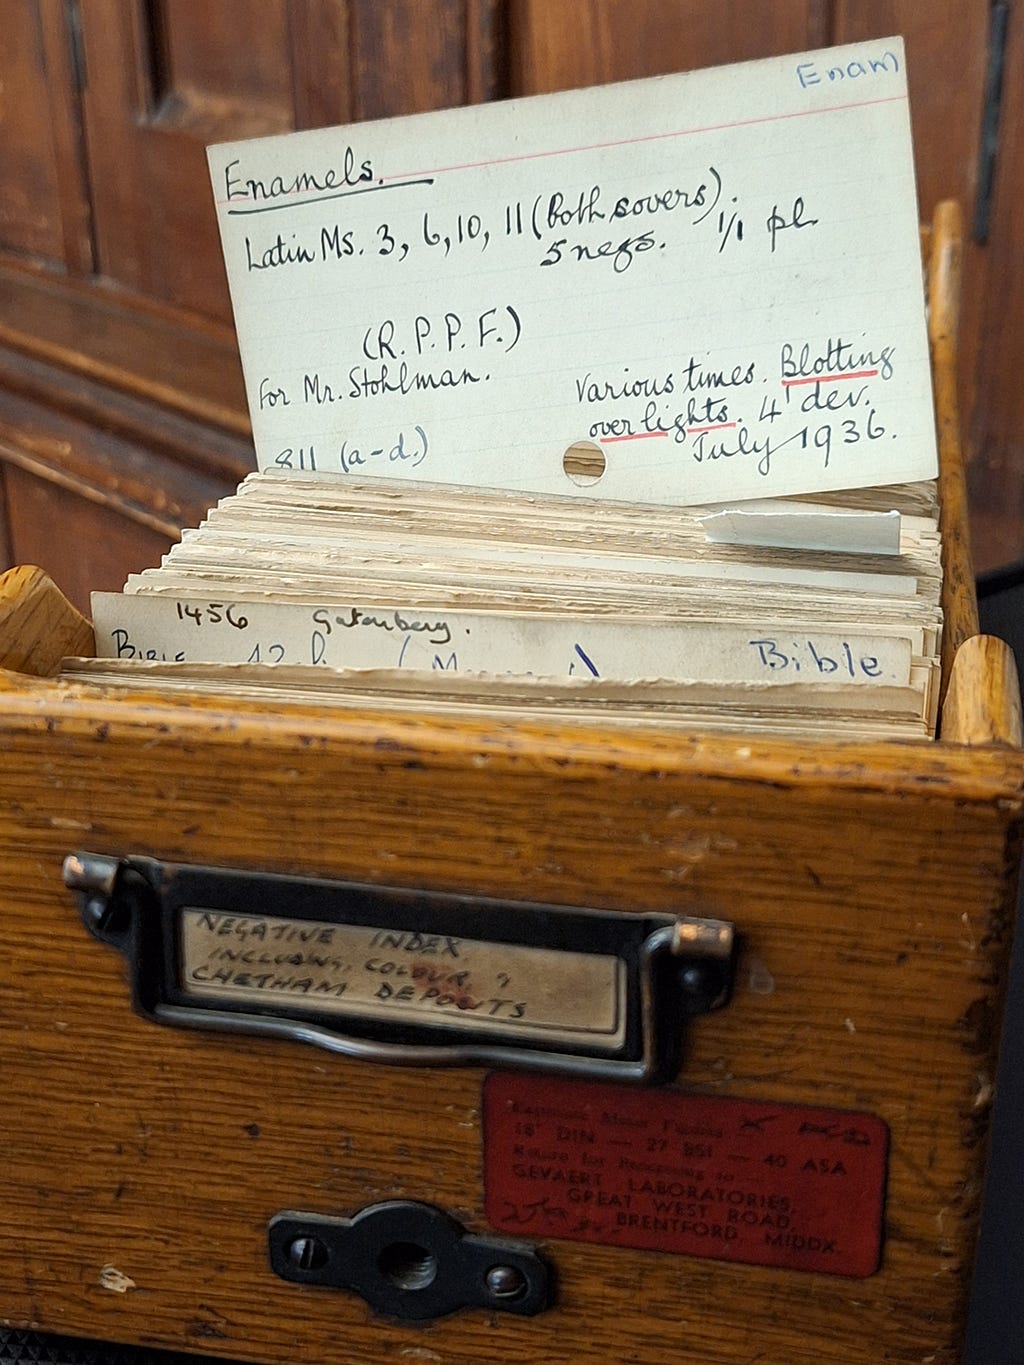 Enam
Enamels.
Latin Ms. 3, 6, 10, 11 (both covers).
5 negs. 1/1 pl
(R.P.P.F.)
for Mr. Stohlman.
Various times. Blotting
over lights. 4' dev.
July 1936.
811 (a-d.)
1456 Gutenberg.
BIBLE 42 Bible.
NEGATIVE INDEX
INCLUDING, COLOUR, "
CHETHAM DEPOSITS
18° DIN — 27 BSI — 40 ASA
Return for Processing to:—
GEVAERT LABORATORIES,
GREAT WEST ROAD,
BRENTFORD, MIDDX.